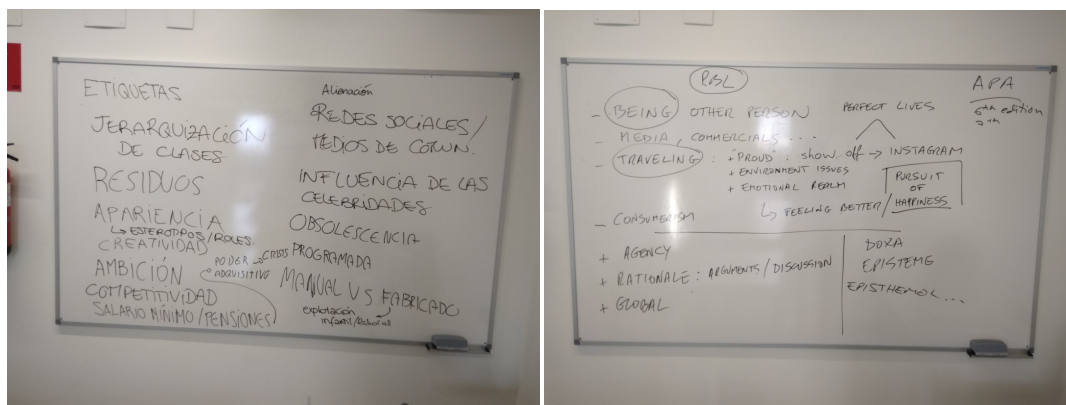 ETIQUETAS
JERARQUIZACIÓN
DE CLASES
RESIDUOS
APARIENCIA
↳ ESTEROTIPOS/ROLES.
CREATIVIDAD
AMBICIÓN
PODER
ADQUISITIVO
COMPETITIVIDAD
SALARIO MÍNIMO/PENSIONES
Alienación
REDES SOCIALES/
MEDIOS DE COMUN.
INFLUENCIA DE LAS
CELEBRIDADES
OBSOLESCENCIA
CRISIS PROGRAMADA
MANUAL VS FABRICADO
explotación
PBL
- BEING OTHER PERSON
- MEDIA, COMMERCIALS ...
- TRAVELING: + "PROUD": show off → INSTAGRAM
+ ENVIRONMENT ISSUES
+ EMOTIONAL REALM
↳ FEELING BETTER/
PERFECT LIVES
PURSUIT
OF
HAPPINESS
- CONSUMERISM
+ AGENCY
+ RATIONALE: ARGUMENTS/DISCUSSION
+ GLOBAL
DOXA
EPISTEME
EPISTHEMOL...
APA
6th edition
7th